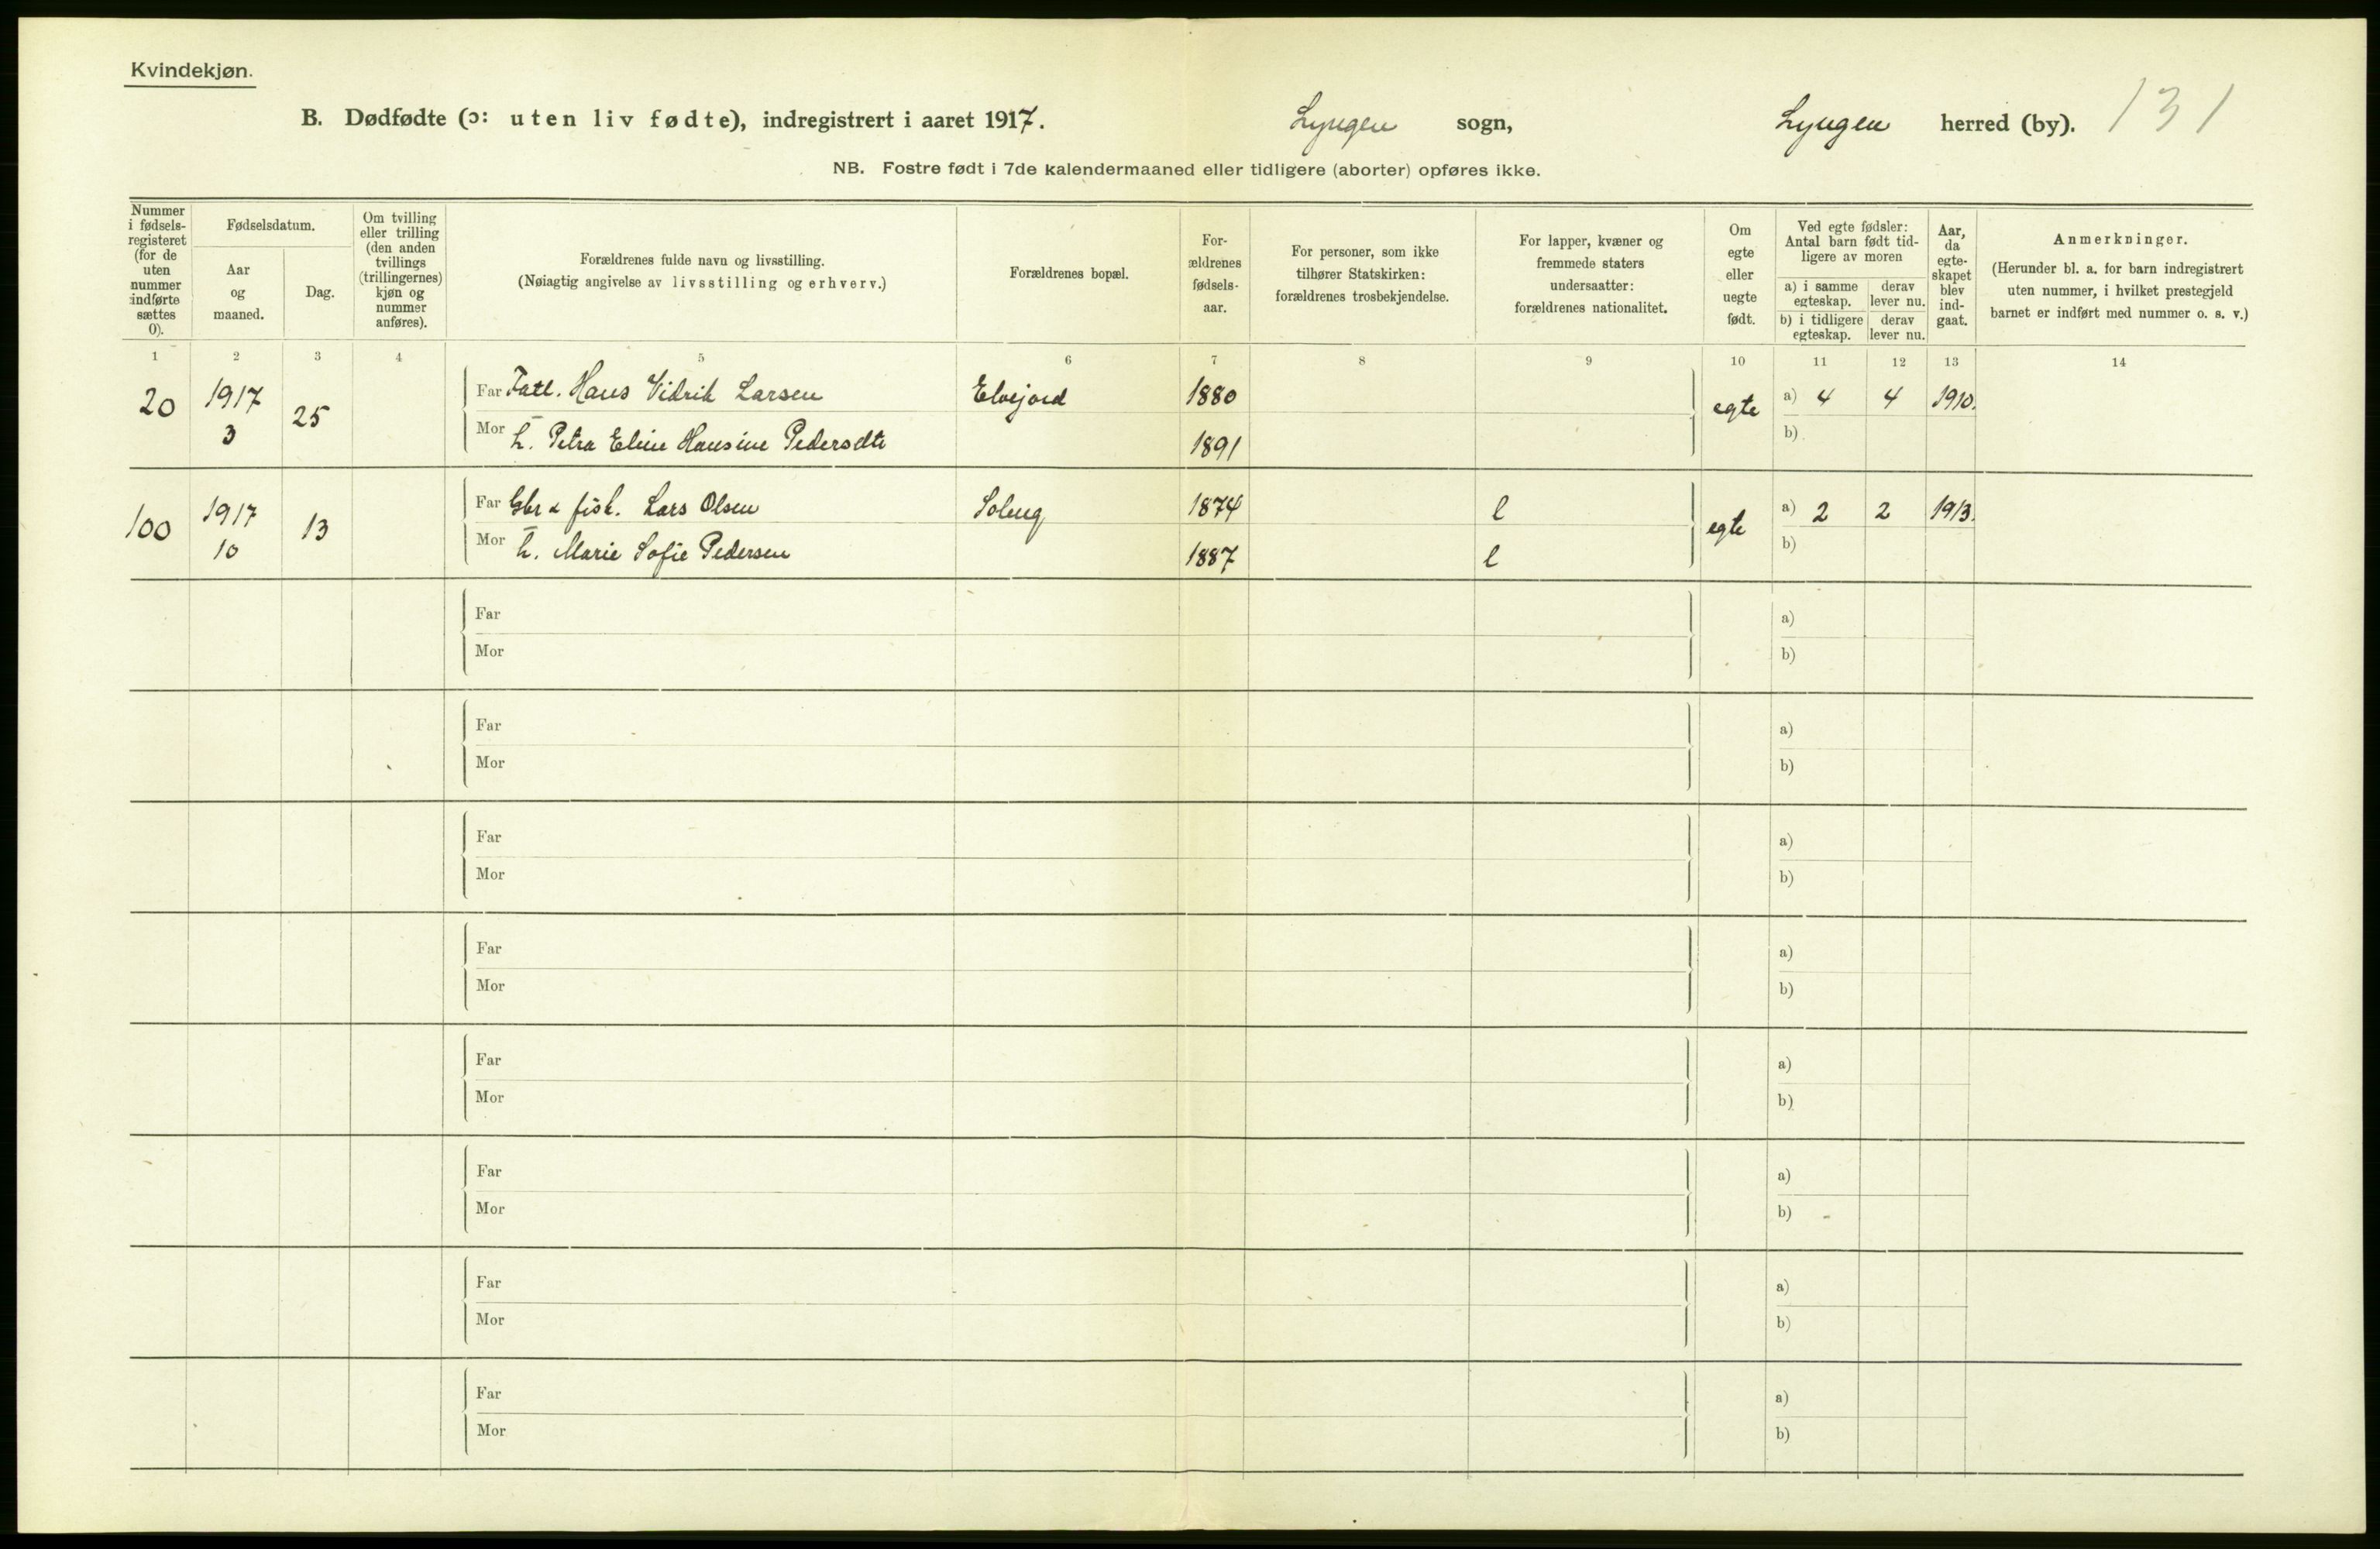 Kvindekjøn.
B. Dødfødte (ɔ: uten liv fødte), indregistrert i aaret 1917. Lyngen sogn, Lyngen herred (by). 131
NB. Fostre født i 7de kalendermaaned eller tidligere (aborter) opføres ikke.
Nummer i fødsels-registeret (for de uten nummer indførte sættes 0).
Fødselsdatum.
Aar og maaned.
Dag.
Om tvilling eller trilling (den anden tvillings (trillingernes) kjøn og nummer anføres).
Forældrenes fulde navn og livsstilling.
(Nøiagtig angivelse av livsstilling og erhverv.)
Forældrenes bopæl.
For-ældrenes fødsels-aar.
For personer, som ikke tilhører Statskirken: forældrenes trosbekjendelse.
For lapper, kvæner og fremmede staters undersaatter: forældrenes nationalitet.
Om egte eller uegte født.
Ved egte fødsler: Antal barn født tid-ligere av moren
a) i samme egteskap. derav lever nu.
b) i tidligere egteskap. derav lever nu.
Aar, da egte-skapet blev ind-gaat.
Anmerkninger.
(Herunder bl. a. for barn indregistrert uten nummer, i hvilket prestegjeld barnet er indført med nummer o. s. v.)
1 2 3 4 5 6 7 8 9 10 11 12 13 14
20 1917 3 25 Far Hans Vidrik Larsen Elvejord 1880 egte a) 4 4 1910.
Mor h. Petra Eline Hansine Pedersdtr 1891 b)
100 1917 10 13 Far Gbr & fisk. Lars Olsen Soleng 1874 l egte a) 2 2 1913.
Mor h. Marie Sofie Pedersen 1887 l b)
Far a)
Mor b)
Far a)
Mor b)
Far a)
Mor b)
Far a)
Mor b)
Far a)
Mor b)
Far a)
Mor b)
Far a)
Mor b)
Far a)
Mor b)